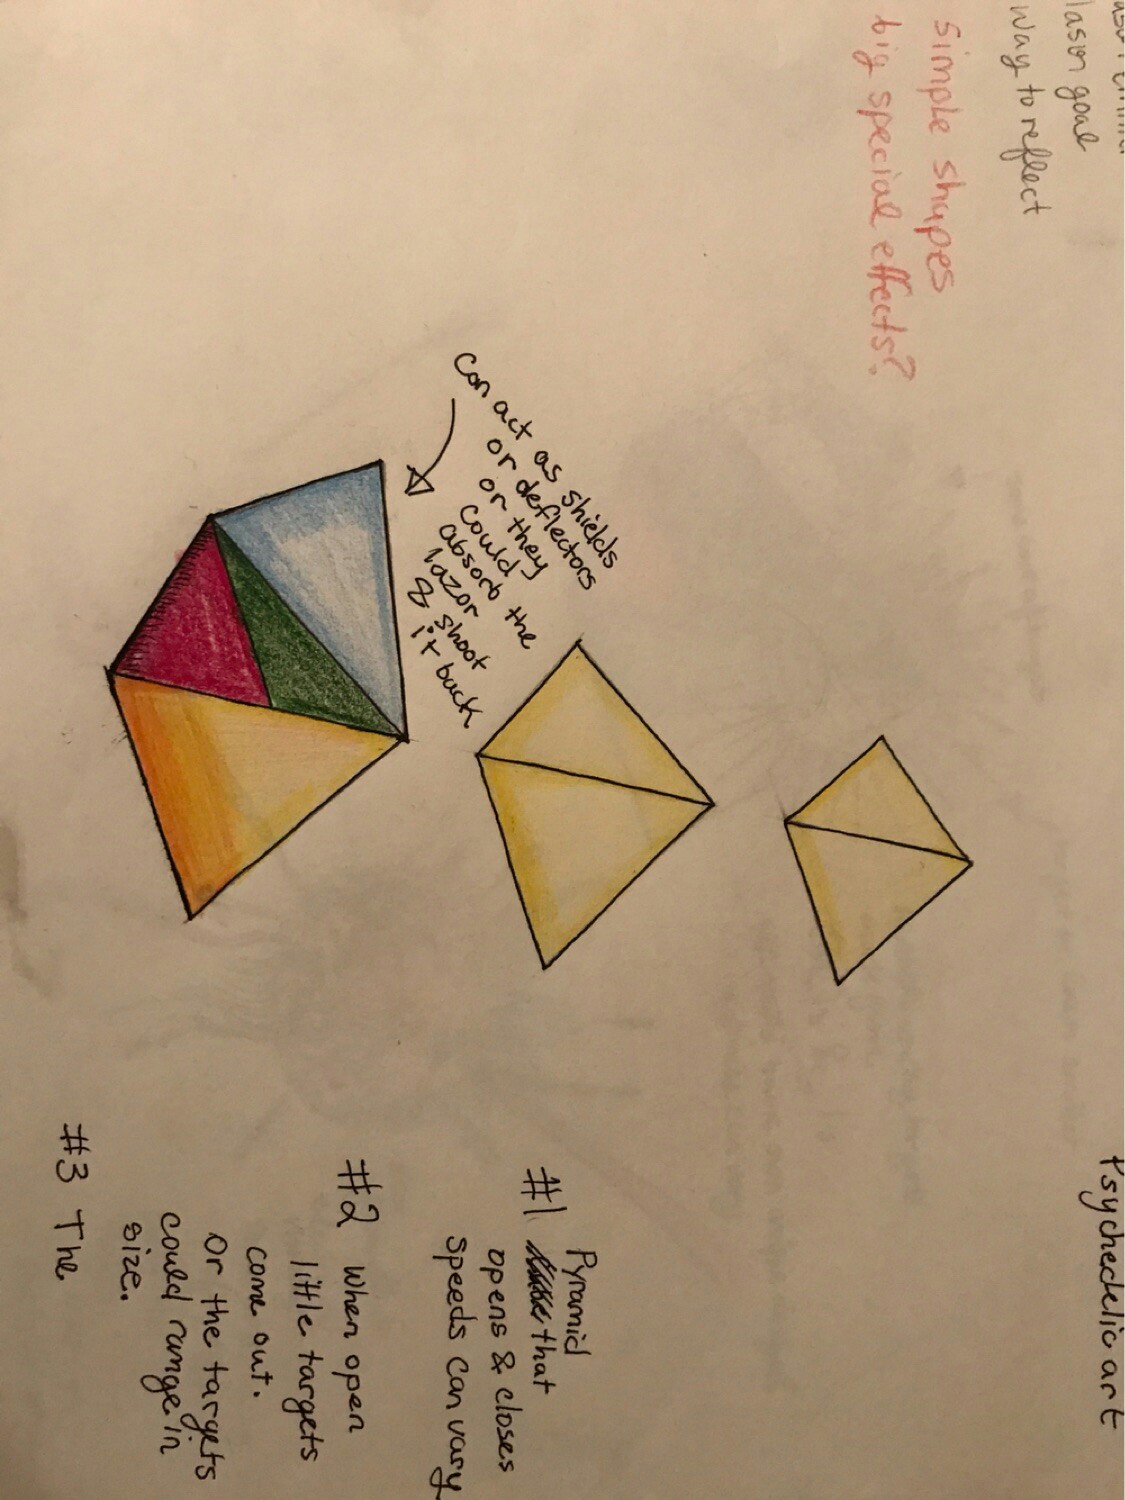 lason goal
way to reflect
Simple shapes
big special effects?
Psychedelic art
Can act as shields
or deflectors
or they
could
absorb the
lazor
& shoot
it back
#1 Pyramid
that
opens & closes
speeds can vary
#2 When open
little targets
come out.
Or the targets
could range in
size.
#3 The